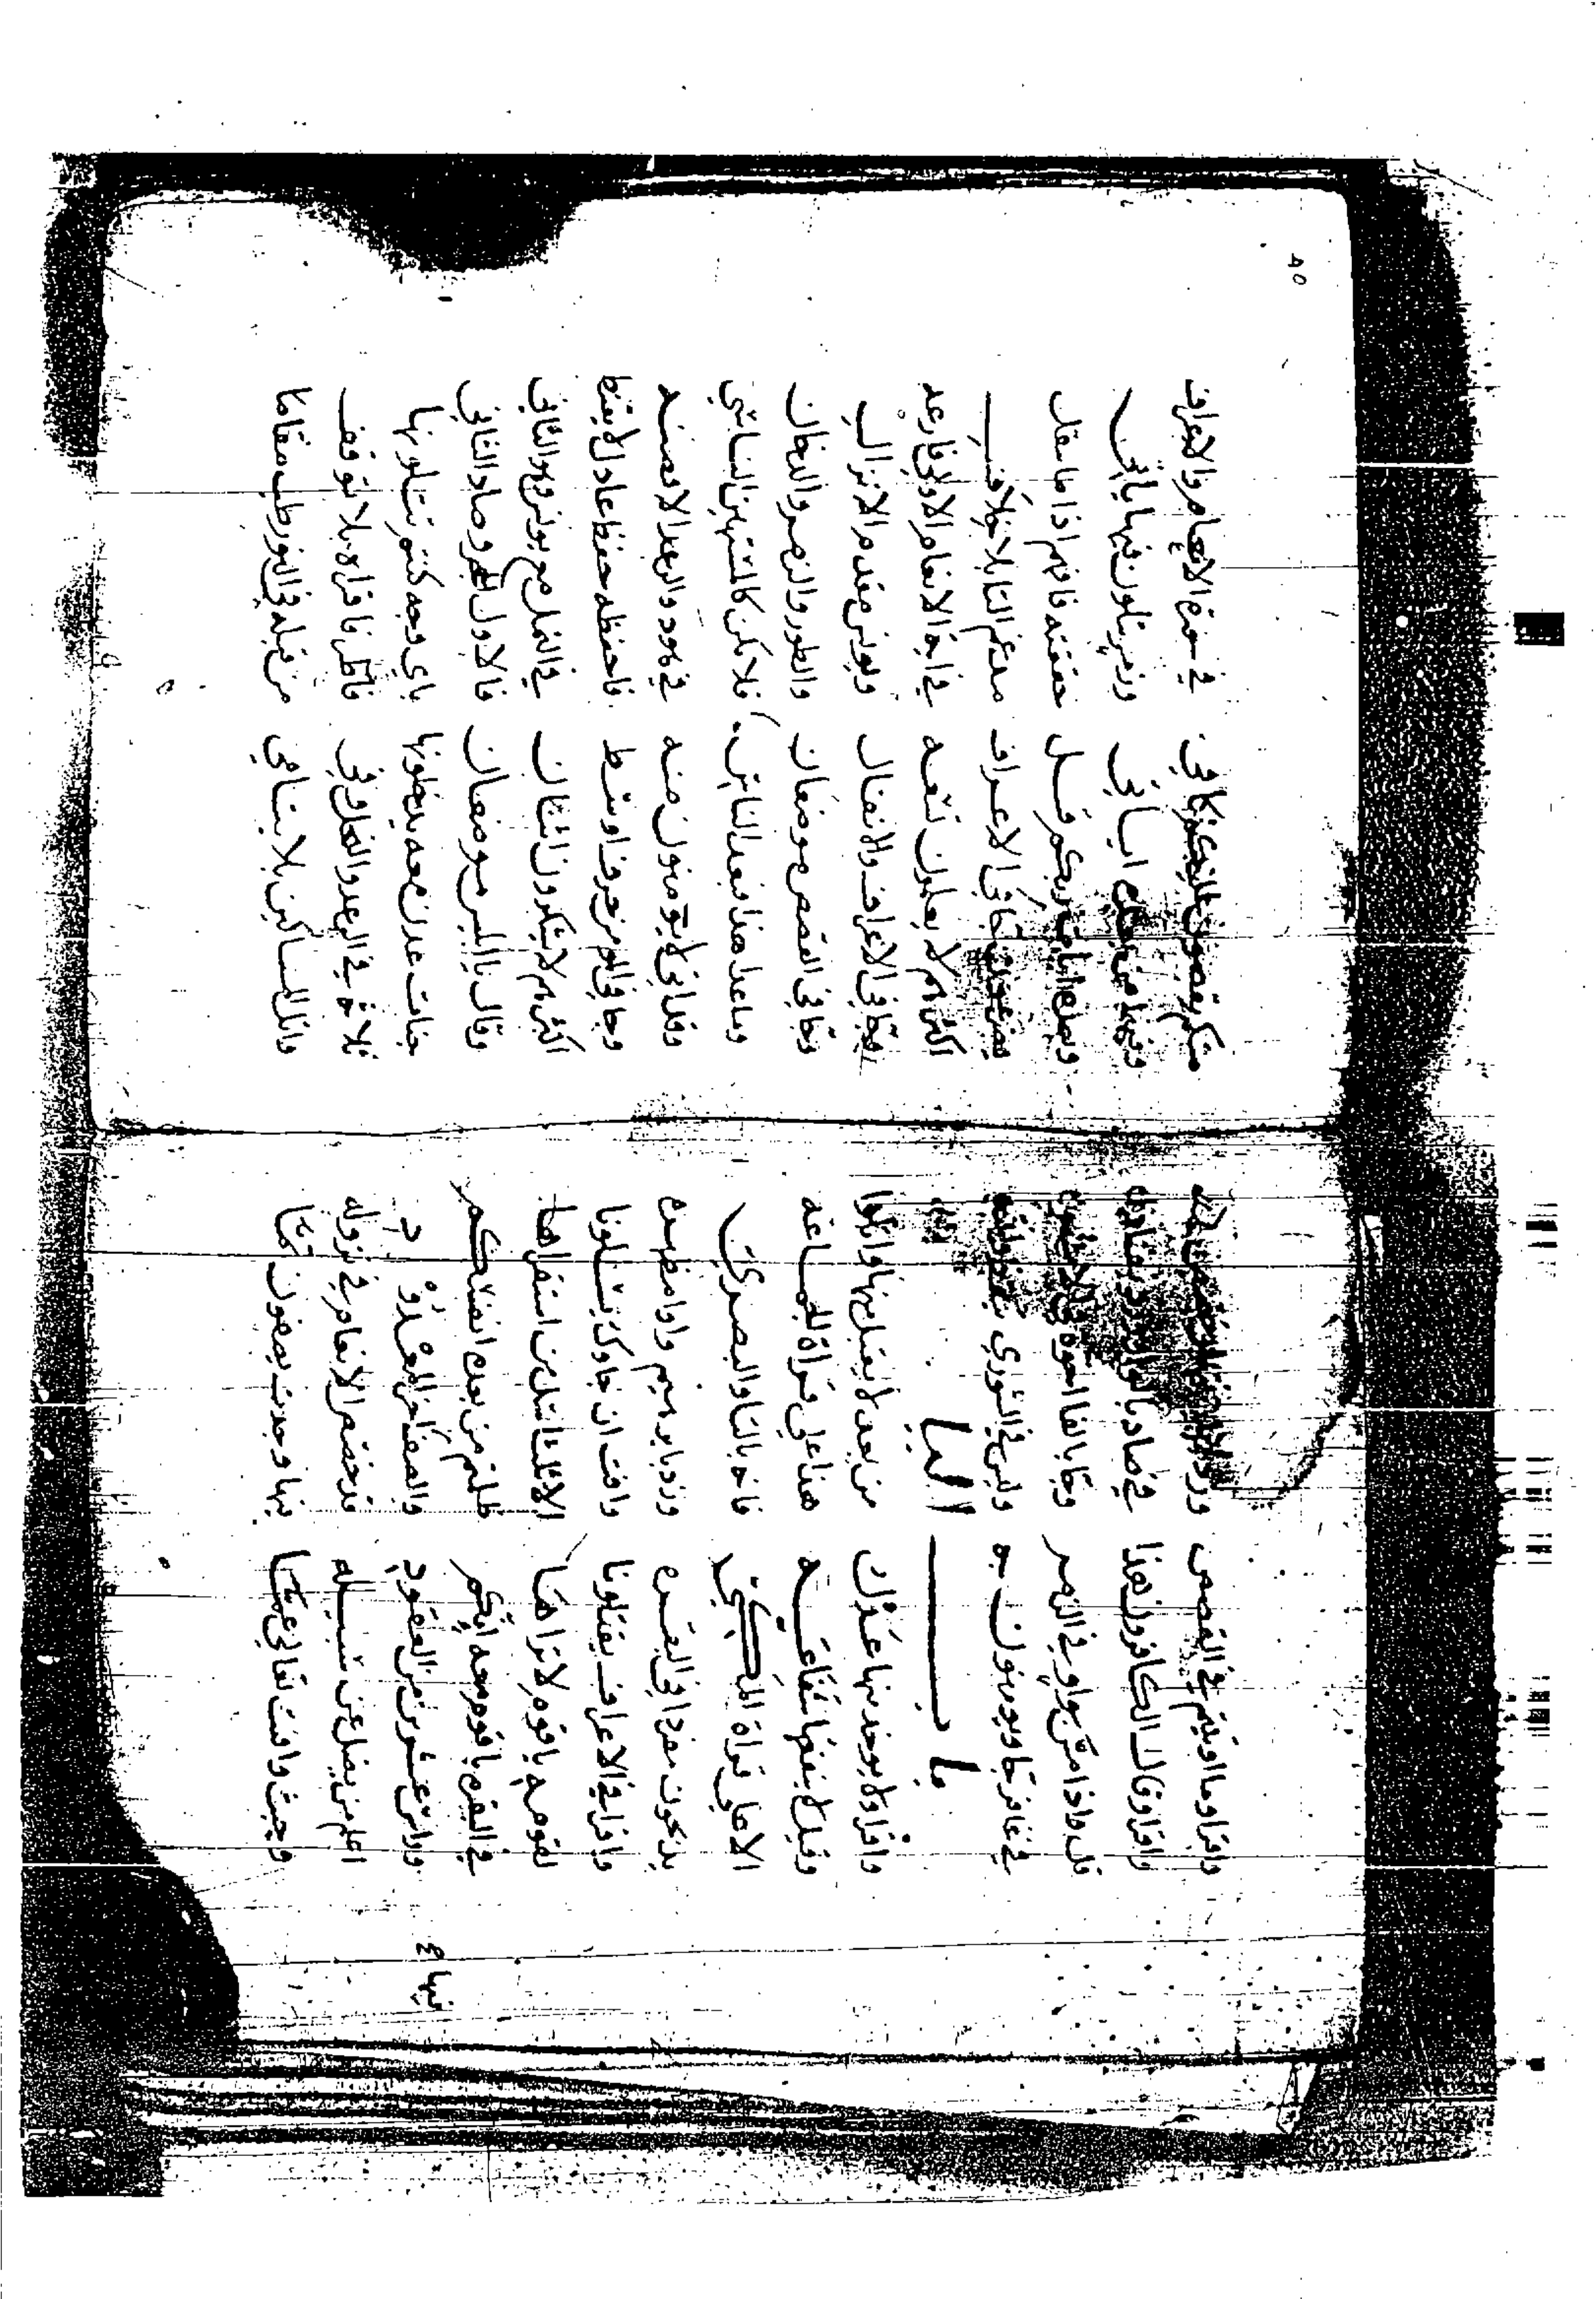 واقرا وما اوتيتم في القصص
واقرا وقال الكافرون هذا في صاد بالواو
قل واذا مس بواو في الزمر وجا بالفا اخوه
في غافر جا ويومنون به وليس في الشوري
باب اليا
واقرا ولا يوخذ منها عدل من بعد لا يقبل منها واتلوا
وقبل لا ينفعها شفاعه هذا علي قراة الجماعه
الا علي قراة المكي فانه بالتا والبصري
يذبحون مفردا في البقره وزد بابرهيم واوا مظهره
واقرا في الاعراف يقتلونا وافت ان جاوك يسئلونا
لقومه ياقوم لا تراها الا ثلثا استقراها
في البقره ياقوم معه انكم ظلمتم من بعده انفسكم
واثن عشرين من العقود والصف اخر المعدود
فيها ع
اعلم من يضل عن سبيله قد خص الانعام في نزوله
وحيث وافت تعالي عما فيها وجدت يصفون ثما
٤٥
منكم يقصون عليكم كافي في سورة الانعام والاعراف
وفيهما من بعده اياتي وزمر يتلون فيها ياتي
وبعده ايات ربكم قل حققته فافهم اذا ما تنقل
يضرعون جا في الاعراف مدغم التا بلا خلاف
اكثرهم لا يعلمون تتبعه في اية الانعام الاولي فارعه
وجا في الاعراف والانفال ويونس مقدم الانزال
وجا في القصص موضعان والطور والزمر والدخان
وما عدا هذا فبعد الناس فلا تكن الناسي
وقل اتي لا يومنون منه في هود والرعد الا فصنه
وجا في وسط فاحفظه حفظ عادل لا يقسط
اكثرهم لا يشكرون اثنان في النمل مع يونس وهو الثاني
وقال يا ابليس موضعان فالاول الحجر وصاد الثاني
جنات عدن معه يدخلونها باي وجه كنتم تتلونها
ثلاثة في الرعد والنحل وفي فاطر فاقراه بلا توقف
واتل المساكين بلا يتامي من قبله في النور طب مقاما